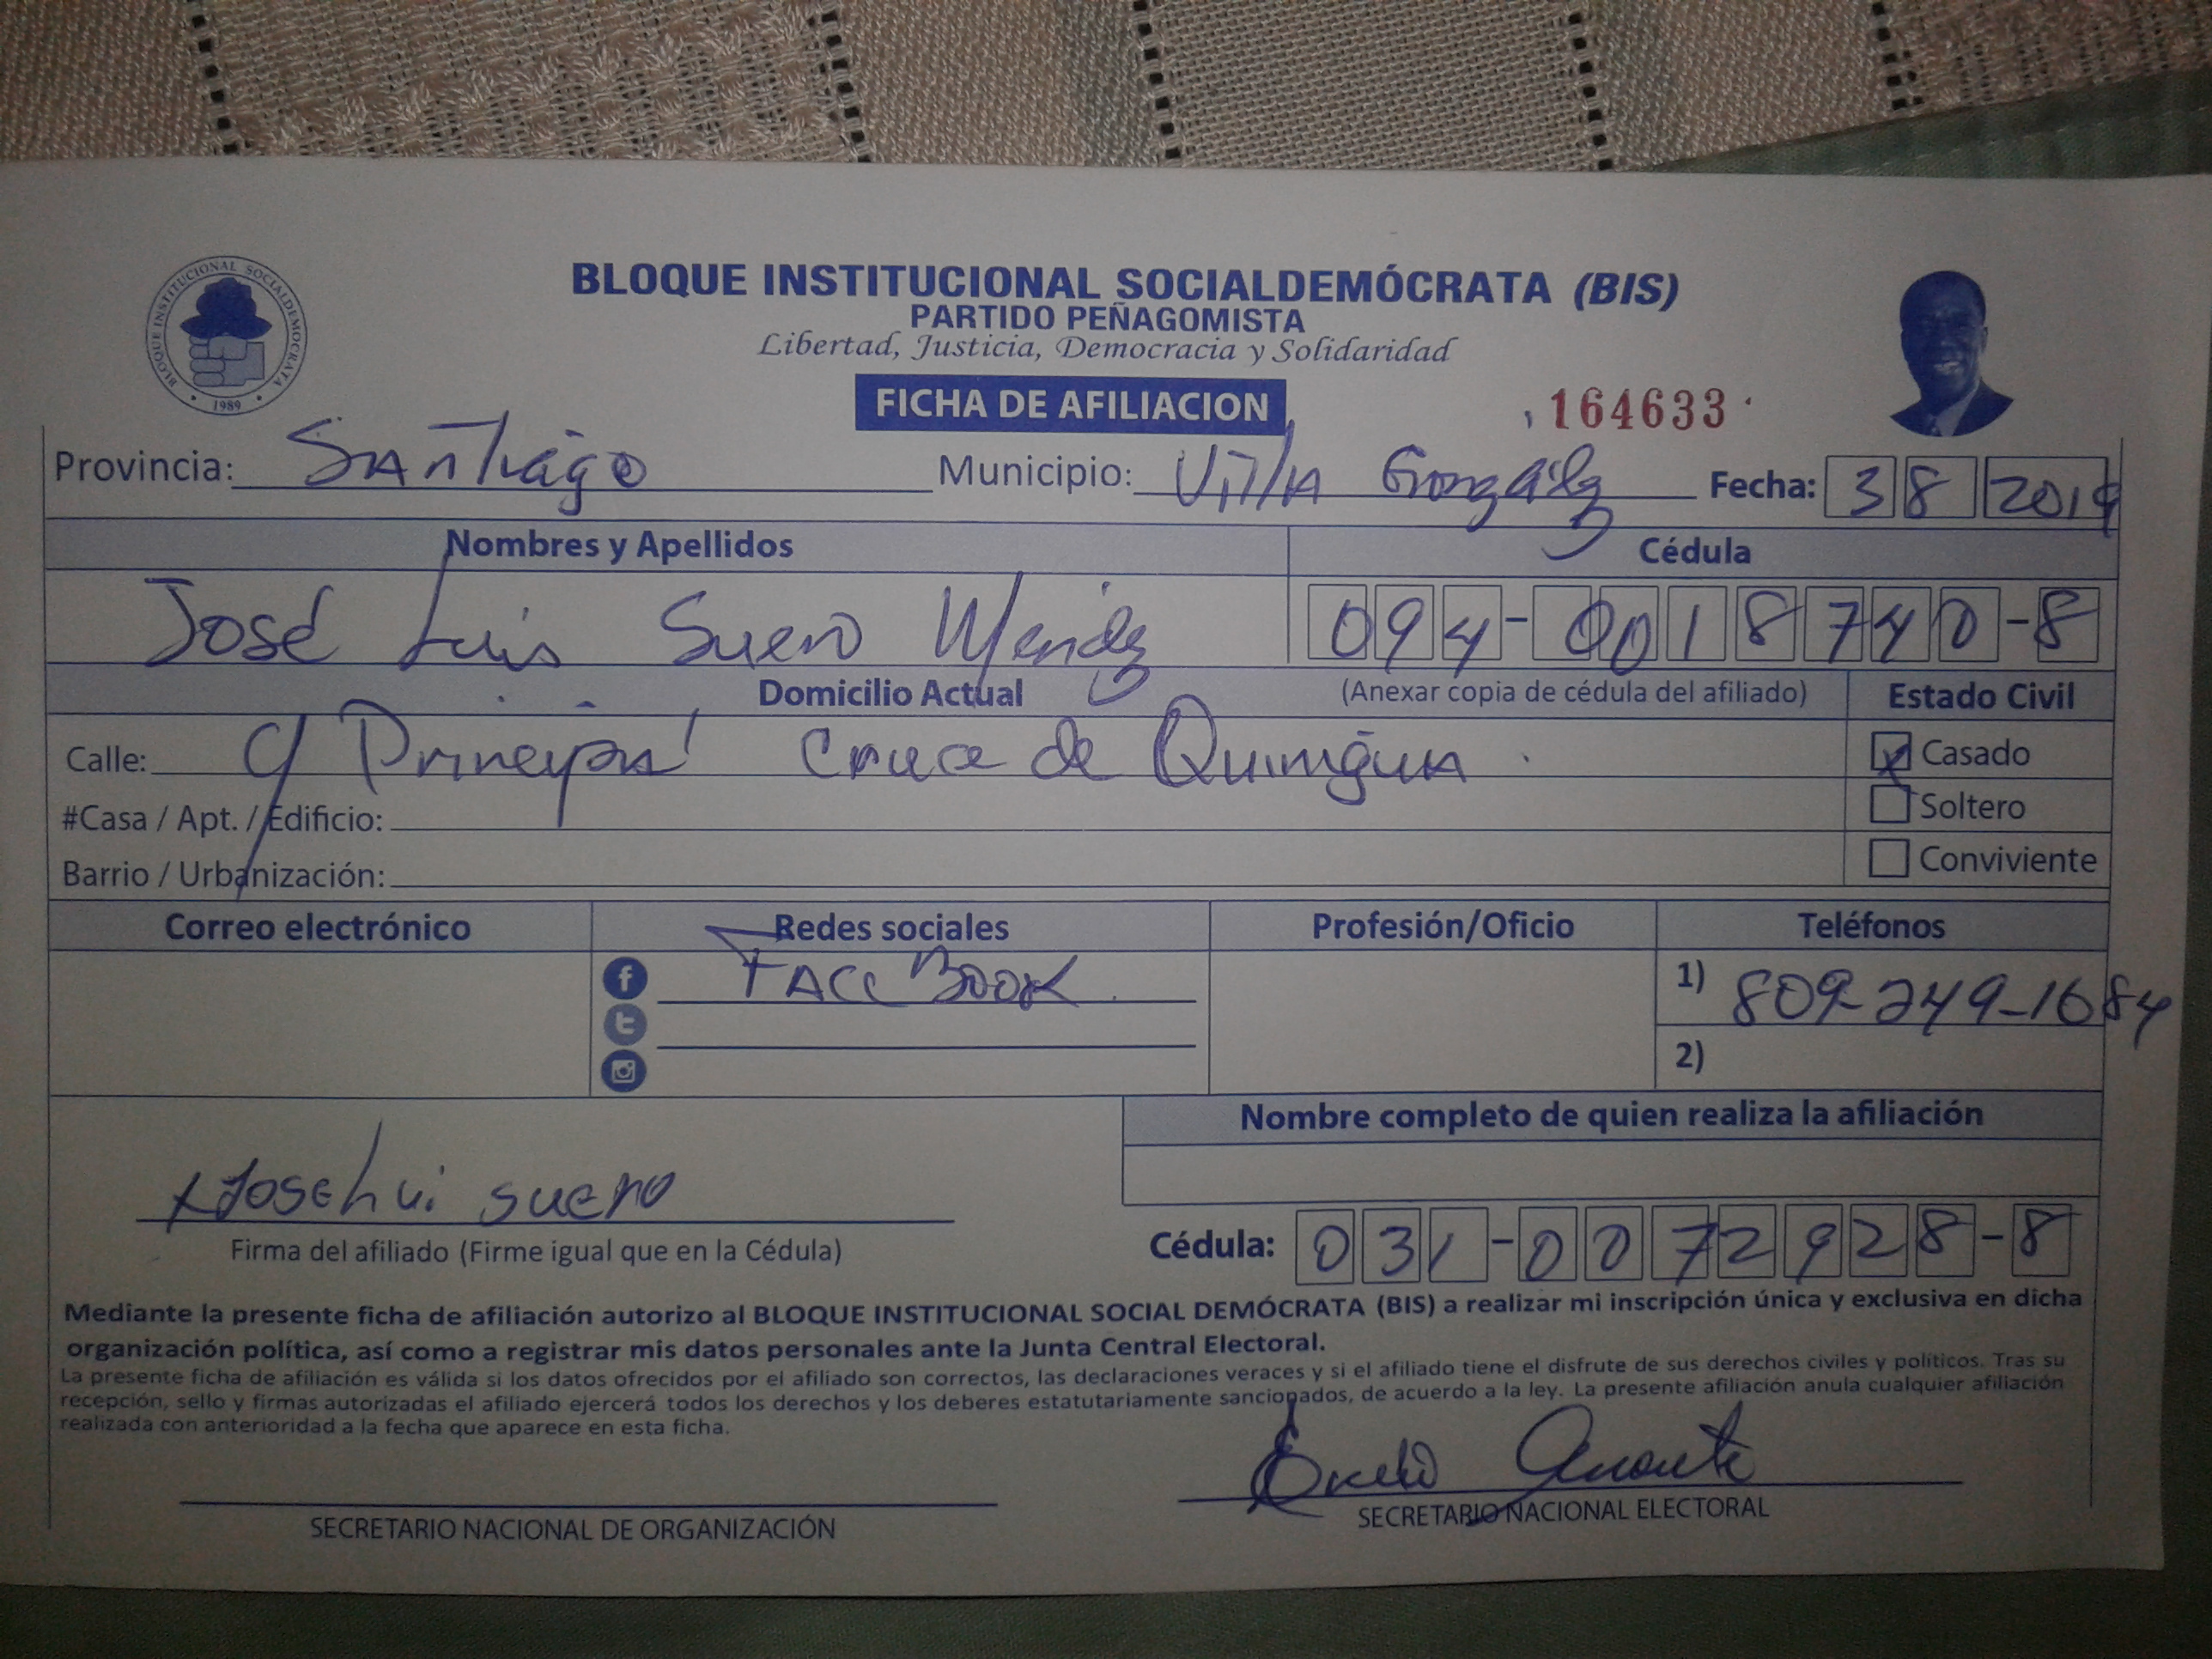 BLOQUE INSTITUCIONAL SOCIALDEMOCRATA
1989
BLOQUE INSTITUCIONAL SOCIALDEMÓCRATA (BIS)
PARTIDO PEÑAGOMISTA
Libertad, Justicia, Democracia y Solidaridad
FICHA DE AFILIACION
164633
Provincia: Santiago Municipio: Villa González Fecha: 3 8 2019
Nombres y Apellidos Cédula
José Luis Suero Mendez 094-0018740-8
Domicilio Actual (Anexar copia de cédula del afiliado) Estado Civil
Calle: C/ Principal Cruce de Quinigua Casado
#Casa / Apt. / Edificio: Soltero
Barrio / Urbanización: Conviviente
Correo electrónico Redes sociales Profesión/Oficio Teléfonos
f FACEBOOK 1) 809-249-1684
2)
Nombre completo de quien realiza la afiliación
x Jose Lui suero
Firma del afiliado (Firme igual que en la Cédula) Cédula: 031-0072928-8
Mediante la presente ficha de afiliación autorizo al BLOQUE INSTITUCIONAL SOCIAL DEMÓCRATA (BIS) a realizar mi inscripción única y exclusiva en dicha
organización política, así como a registrar mis datos personales ante la Junta Central Electoral.
La presente ficha de afiliación es válida si los datos ofrecidos por el afiliado son correctos, las declaraciones veraces y si el afiliado tiene el disfrute de sus derechos civiles y políticos. Tras su
recepción, sello y firmas autorizadas el afiliado ejercerá todos los derechos y los deberes estatutariamente sancionados, de acuerdo a la ley. La presente afiliación anula cualquier afiliación
realizada con anterioridad a la fecha que aparece en esta ficha.
SECRETARIO NACIONAL DE ORGANIZACIÓN SECRETARIO NACIONAL ELECTORAL